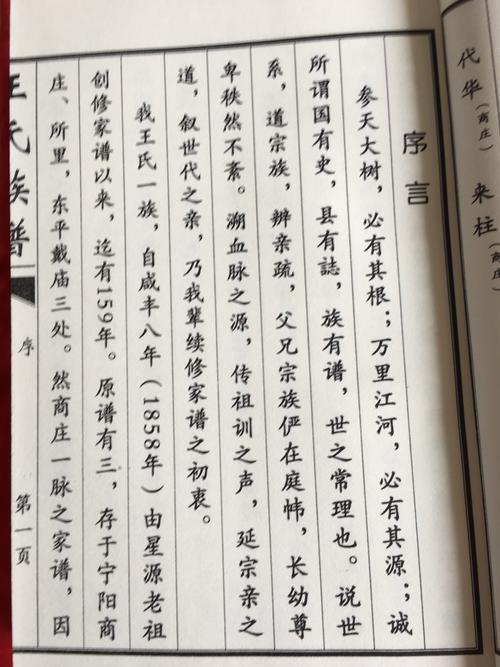 代华(商庄)
来柱(商庄)
序言
参天大树,必有其根;万里江河,必有其源;诚
所谓国有史,县有誌,族有谱,世之常理也。说世
系,道宗族,辨亲疏,父兄宗族俨在庭帏,长幼尊
卑秩然不紊。溯血脉之源,传祖训之声,延宗亲之
道,叙世代之亲,乃我辈续修家谱之初衷。
我王氏一族,自咸丰八年(1858年)由星源老祖
创修家谱以来,迄有159年。原谱有三,存于宁阳商
庄、所里,东平戴庙三处。然商庄一脉之家谱,因
王氏族谱
序
第一页